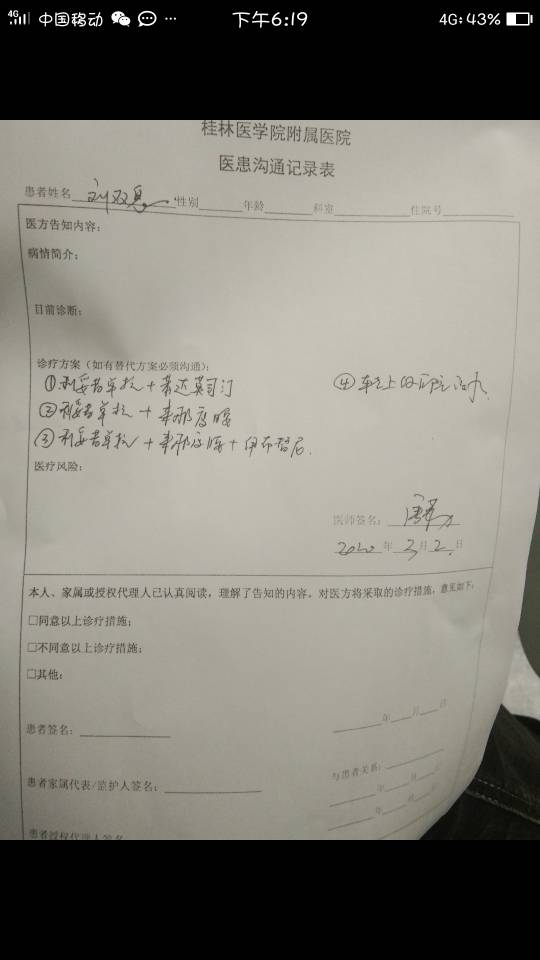 中国移动 下午6:19 4G 43%
桂林医学院附属医院
医患沟通记录表
患者姓名 刘双 性别 年龄 科室 住院号
医方告知内容:
病情简介:
目前诊断:
诊疗方案(如有替代方案必须沟通):
①利妥昔单抗+苯达莫司汀
②利妥昔单抗+来那度胺
③利妥昔单抗+来那度胺+伊布替尼.
④ 上 医院
医疗风险:
医师签名:
2020年3月2日
本人、家属或授权代理人已认真阅读,理解了告知的内容。对医方将采取的诊疗措施,意见如下:
□同意以上诊疗措施;
□不同意以上诊疗措施;
□其他:
患者签名: 年 月 日
与患者关系:
患者家属代表/监护人签名: 年 月 日
年 月 日
患者授权代理人签名